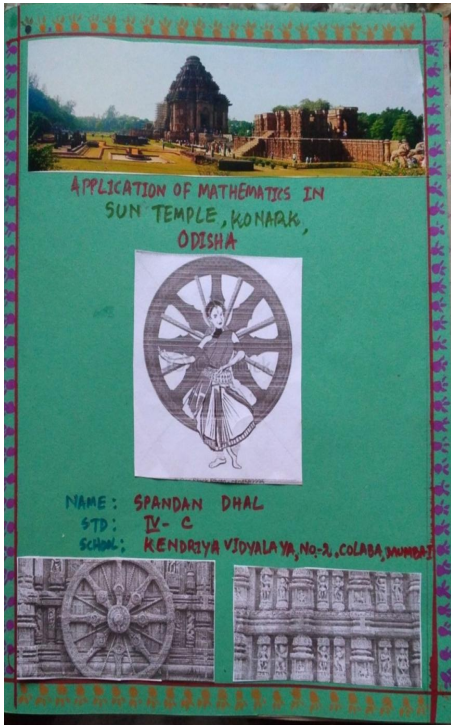 APPLICATION OF MATHEMATICS IN
SUN TEMPLE, KONARK,
ODISHA
NAME: SPANDAN DHAL
STD: IV - C
SCHOOL: KENDRIYA VIDYALAYA, NO.-2, COLABA, MUMBAI